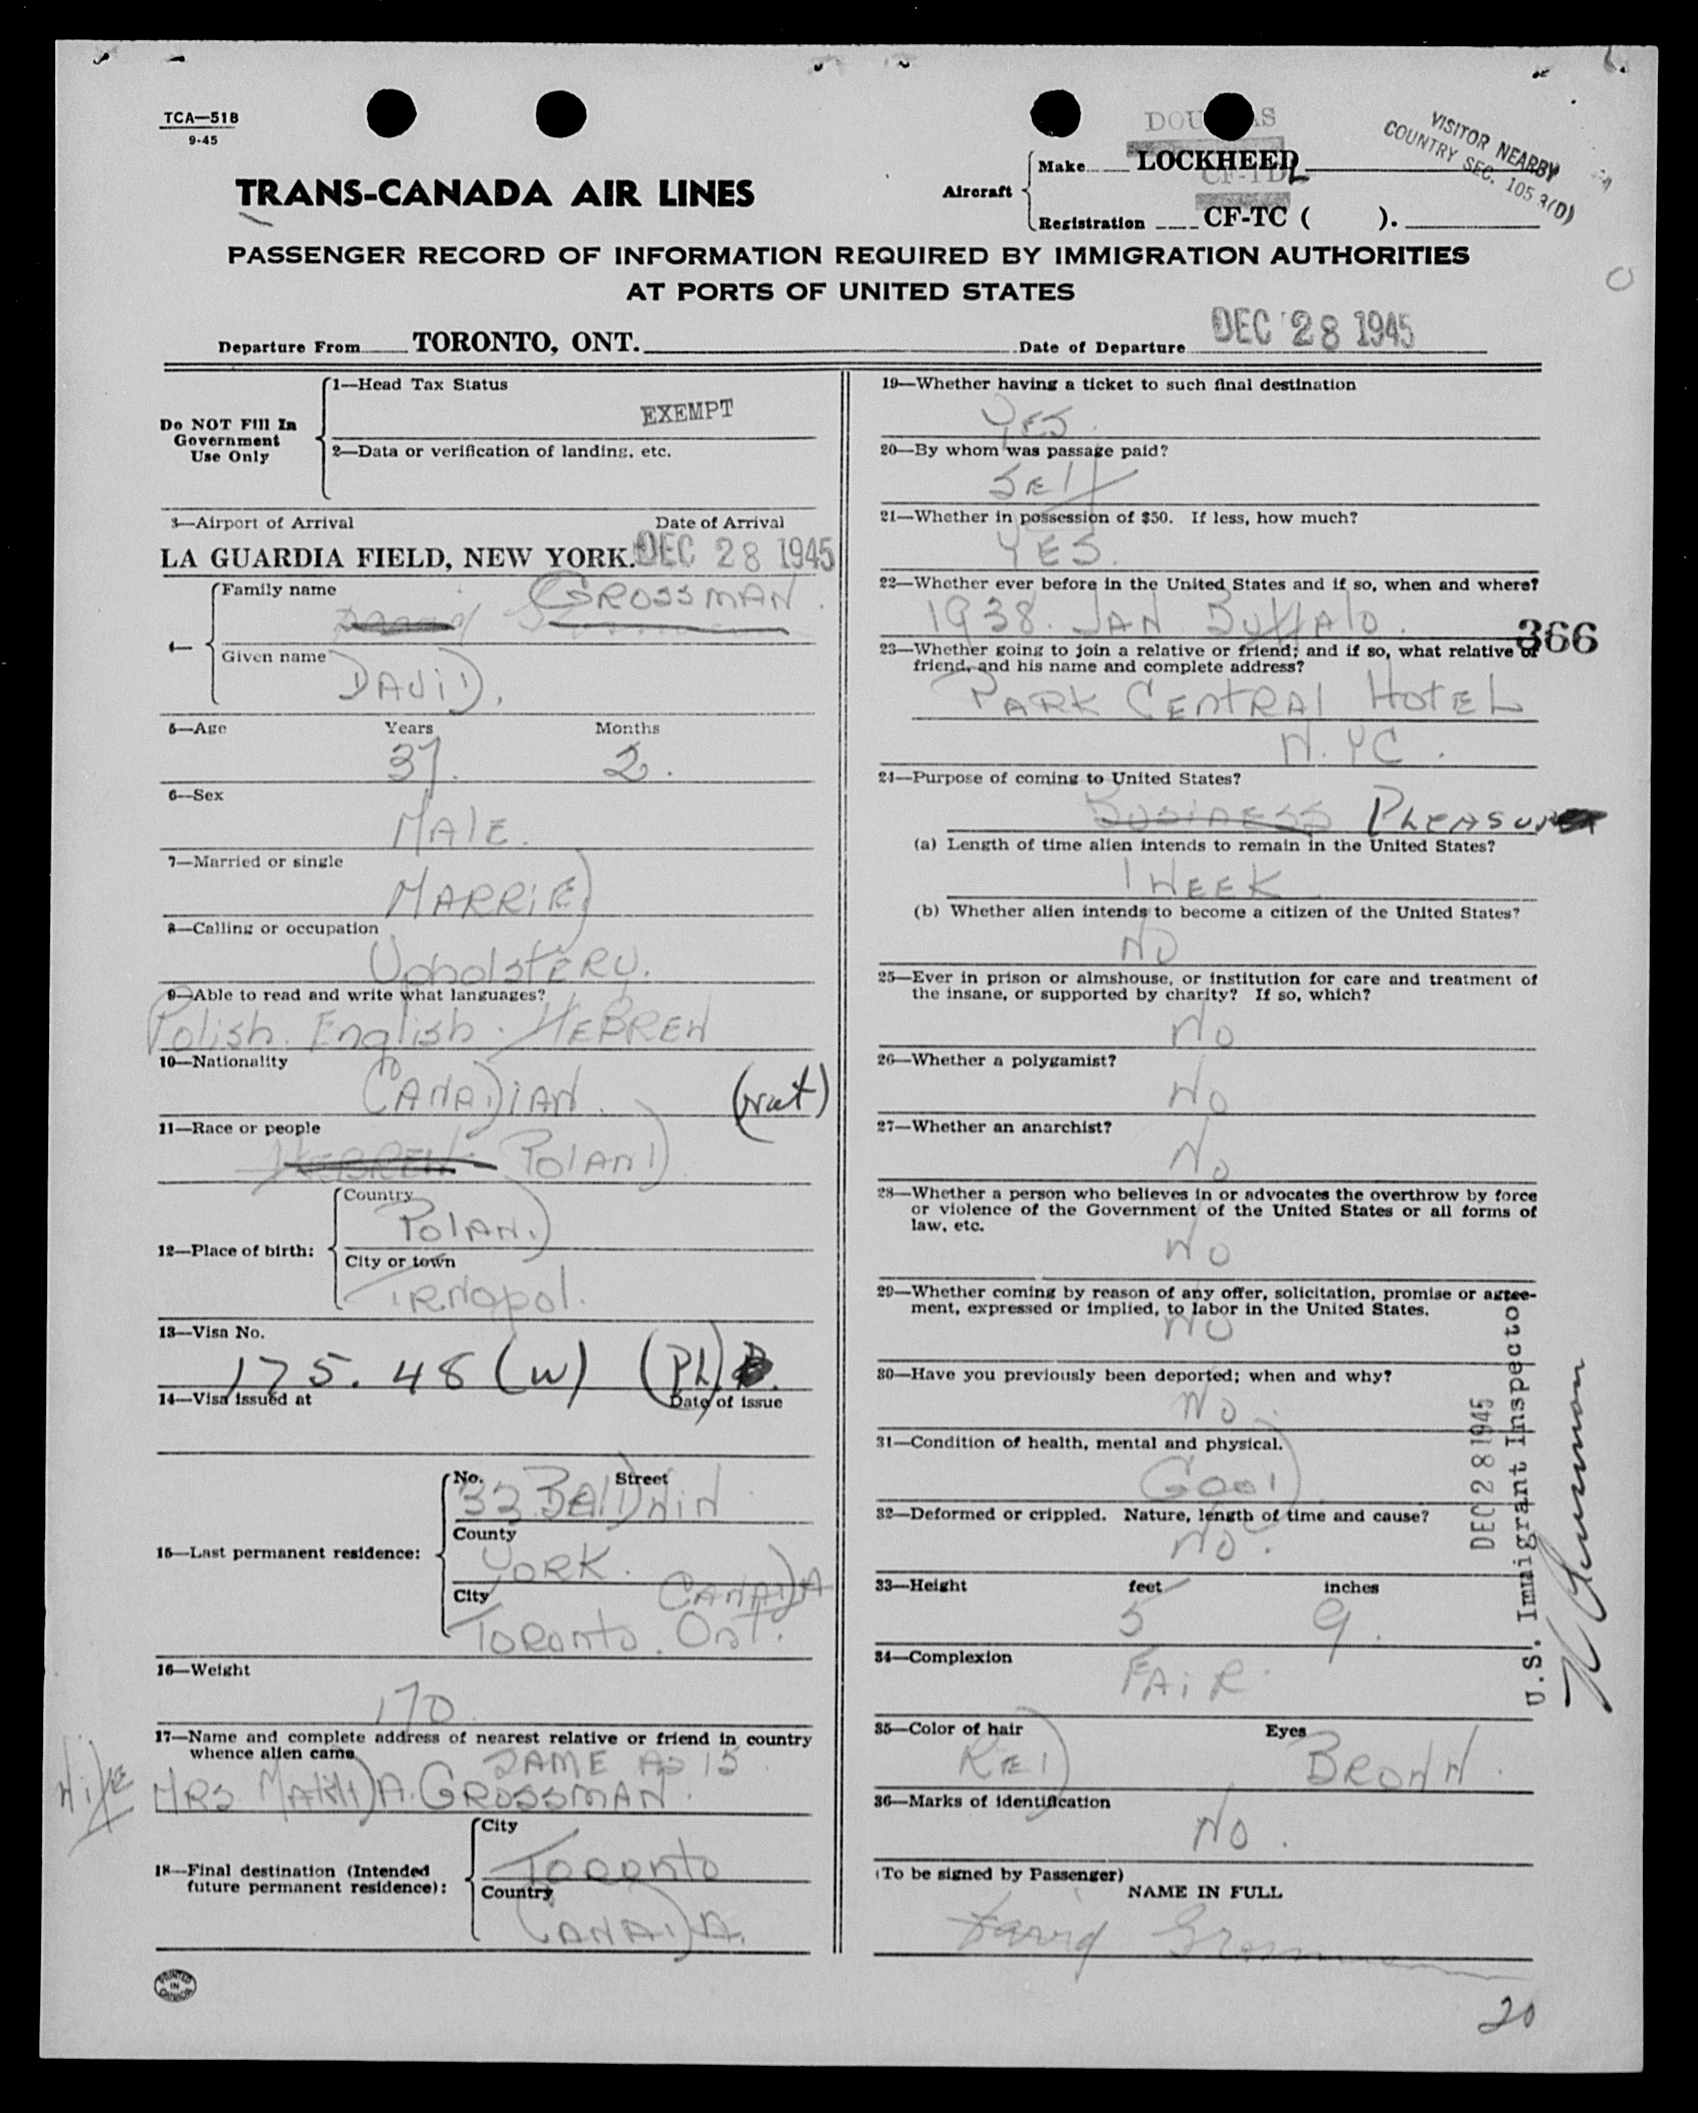 TCA—518
9-45
TRANS-CANADA AIR LINES
DOUGLAS
Aircraft
Make LOCKHEED
CF-TD
Registration CF-TC ( ).
VISITOR NEARBY
COUNTRY SEC. 105 3(D)
PASSENGER RECORD OF INFORMATION REQUIRED BY IMMIGRATION AUTHORITIES
AT PORTS OF UNITED STATES
Departure From TORONTO, ONT.
Date of Departure DEC 28 1945
Do NOT Fill In
Government
Use Only
1—Head Tax Status
EXEMPT
2—Data or verification of landing, etc.
3—Airport of Arrival Date of Arrival
LA GUARDIA FIELD, NEW YORK. DEC 28 1945
4—
Family name
GROSSMAN.
Given name
DAVID.
5—Age Years Months
37. 2.
6—Sex
MALE.
7—Married or single
MARRIED
8—Calling or occupation
UpholstERY.
9—Able to read and write what languages?
Polish. English. HEBREW
10—Nationality
CANADIAN. (nat)
11—Race or people
HEBREW POLAND
12—Place of birth:
Country
POLAND
City or town
TRNopol.
13—Visa No.
175.48 (W) (Ph)
14—Visa issued at Date of issue
15—Last permanent residence:
No. Street
33 BALDWIN
County
YORK.
City
CANADA
TORONTO. Ont.
16—Weight
170
17—Name and complete address of nearest relative or friend in country
whence alien came
SAME AS 15
WIFE
MRS GROSSMAN.
18—Final destination (Intended
future permanent residence):
City
TORONTO
Country
CANADA.
PRINTED
IN
CANADA
19—Whether having a ticket to such final destination
YES.
20—By whom was passage paid?
SELF
21—Whether in possession of $50. If less, how much?
YES.
22—Whether ever before in the United States and if so, when and where?
1938. JAN BUFFALO.
366
23—Whether going to join a relative or friend; and if so, what relative or
friend, and his name and complete address?
PARK CENTRAL HOTEL
N.YC.
24—Purpose of coming to United States?
BUSINESS PLEASURE
(a) Length of time alien intends to remain in the United States?
1 WEEK
(b) Whether alien intends to become a citizen of the United States?
NO
25—Ever in prison or almshouse, or institution for care and treatment of
the insane, or supported by charity? If so, which?
No
26—Whether a polygamist?
No
27—Whether an anarchist?
No
28—Whether a person who believes in or advocates the overthrow by force
or violence of the Government of the United States or all forms of
law, etc.
NO
29—Whether coming by reason of any offer, solicitation, promise or agree-
ment, expressed or implied, to labor in the United States.
NO
30—Have you previously been deported; when and why?
NO.
31—Condition of health, mental and physical.
GOOD
32—Deformed or crippled. Nature, length of time and cause?
NO.
33—Height feet inches
5 9.
34—Complexion
FAIR.
35—Color of hair Eyes
RED BROWN.
36—Marks of identification
NO.
(To be signed by Passenger)
NAME IN FULL
David Grossman
DEC 28 1945
U.S. Immigrant Inspector
20